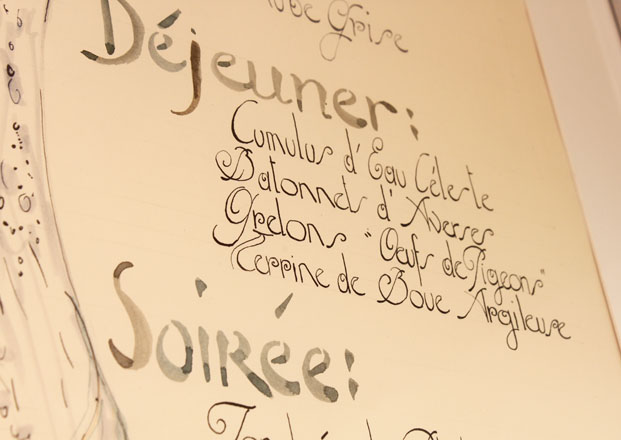 Grise
Déjeuner:
Cumulus d'Eau Céleste
Batonnets d'Averses
Grelons "Oeufs de Pigeons"
Terrine de Boue Argileuse
Soirée: